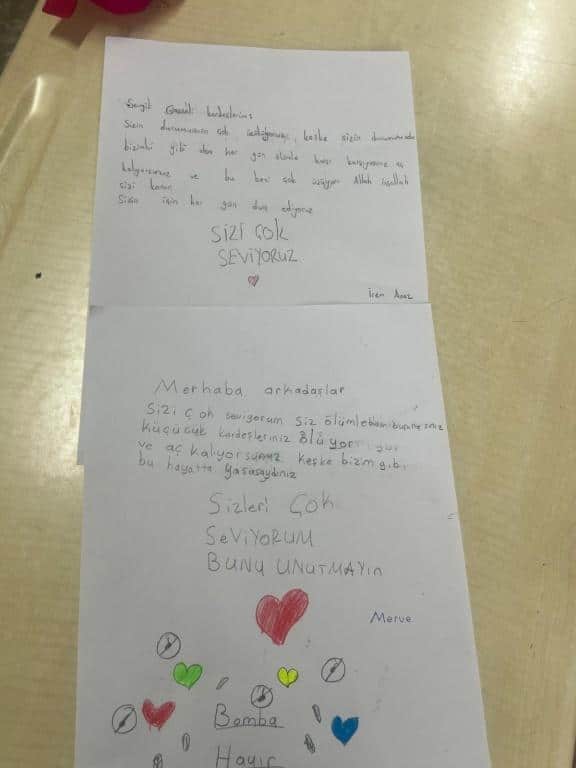 Sevgili Gazzeli kardeşlerim;
Sizin durumunuza çok üzülüyoruz, keşke sizin durumunuzda
bizimki gibi olsa her gün ölümle karşı karşıyasınız aç
kalıyorsunuz ve bu beni çok üzüyor Allah inşallah
sizi korur.
Sizin için her gün dua ediyoruz
SİZİ ÇOK
SEVİYORUZ
İrem
Merhaba arkadaşlar
Sizi çok seviyorum siz ölümle
küçücük kardeşleriniz ölüyor
ve aç kalıyorsunuz keşke bizim gibi
bu hayatta yaşasaydınız
Sizleri Çok
SeVİYORUM
BUNU UNUTMAYIn
Merve
Bomba
Hayır